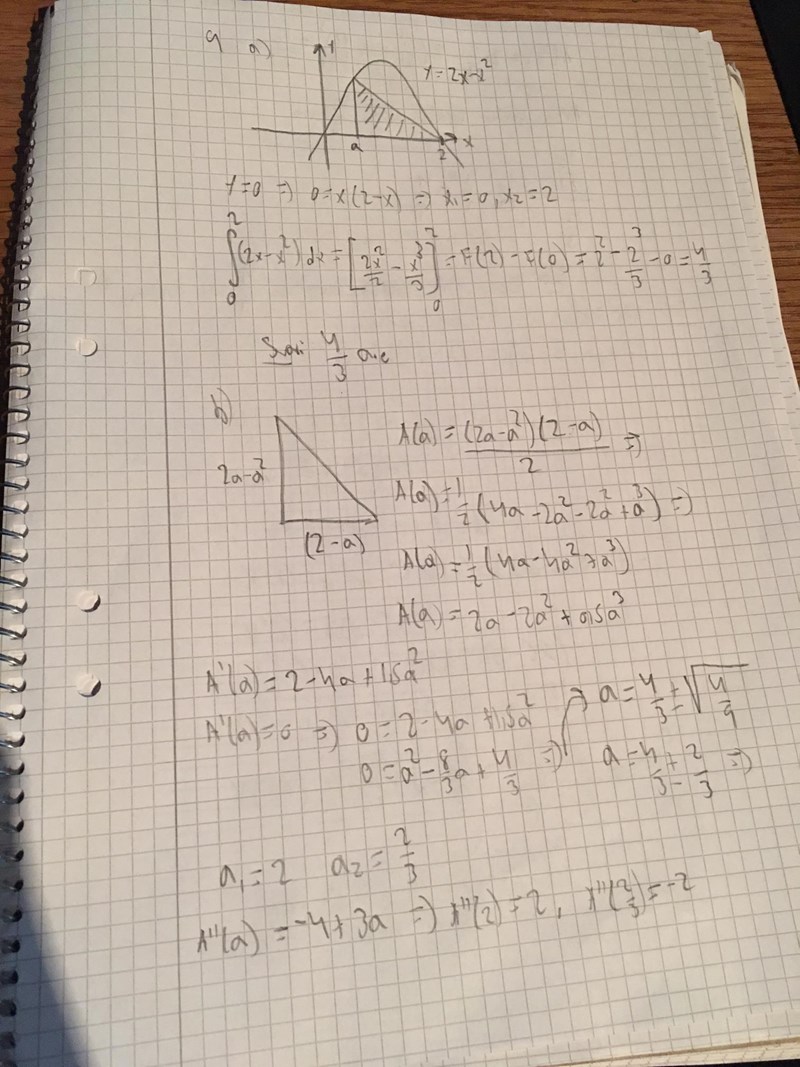 9 a) y
y=2x-x²
a 2 x
y=0 => 0=x(2-x) => x₁=0, x₂=2
∫₀²(2x-x²)dx=[2x²/2 - x³/3]₀²=F(2)-F(0)=2²-2³/3-0=4/3
Svar: 4/3 a.e
b)
2a-a²
(2-a)
A(a)=(2a-a²)(2-a)/2 =>
A(a)=1/2(4a-2a²-2a²+a³) =>
A(a)=1/2(4a-4a²+a³)
A(a)=2a-2a²+0,5a³
A'(a)=2-4a+1,5a²
A'(a)=0 => 0=2-4a+1,5a²
0=a²-8/3a+4/3 =>
a=4/3±√4/9
a=4/3±2/3 =>
a₁=2 a₂=2/3
A''(a)=-4+3a => A''(2)=2, A''(2/3)=-2